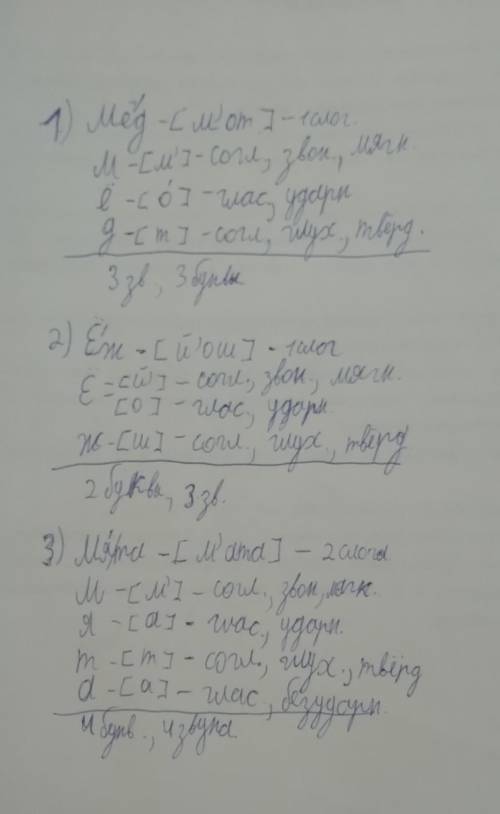 1) Мёд - [м'от] - 1 слог.
м - [м'] - согл., звон., мягк.
ё - [о́] - глас, ударн
д - [т] - согл., глух., твёрд.
3 зв., 3 буквы
2) Ёж - [й'ош] - 1 слог
Ё = [й'] - согл., звон., мягк.
[о] - глас, ударн.
ж - [ш] - согл., глух., твёрд
2 буквы, 3 зв.
3) Мя́та - [м'ата] - 2 слога
м - [м'] - согл., звон, мягк.
я - [а] - глас., ударн.
т - [т] - согл., глух., твёрд
а - [а] - глас, безударн.
4 букв., 4 звука